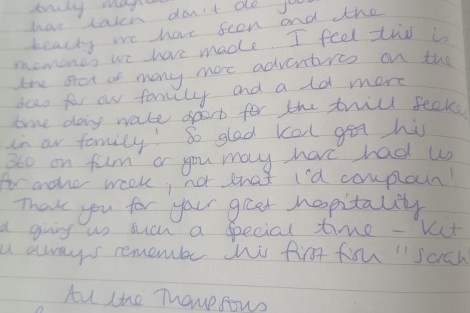 truly
have taken don't do
beauty we have seen and the
memories we have made. I feel this is
the start of many more adventures on the
seas for our family and a lot more
time doing water sports for the thrill seeke
in our family! So glad Kal got his
360 on film or you may have had us
for another week, not that I'd complain!
Thank you for your great hospitality
d giving us such a special time - Kit
always remember his first fish "Sarah
All the Thompsons